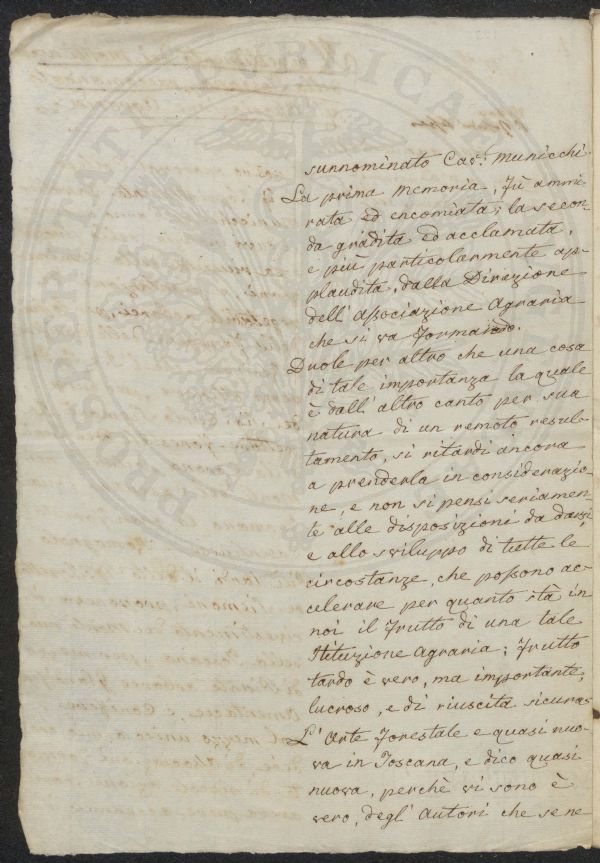 PROSPERITATI PUBLICAE
sunnominato Cav.r Municchi
La prima memoria, fù ammi-
rata ed encomiata; la secon-
da gradita ed acclamata,
e più particolarmente ap-
plaudita, dalla Direzione
dell'Associazione Agraria
che si va formando.
Duole per altro che una cosa
di tale importanza la quale
è dall'altro canto per sua
natura di un remoto resul-
tamento, si ritardi ancora
a prenderla in considerazio-
ne, e non si pensi seriamen-
te alle disposizioni da darsi,
e allo sviluppo di tutte le
circostanze, che possono ac-
celerare per quanto stà in
noi il frutto di una tale
Istituzione Agraria; frutto
tardo è vero, ma importante,
lucroso, e di riuscita sicura.
L'Arte forestale e quasi nuo-
va in Toscana, e dico quasi
nuova, perchè vi sono è
vero, degl'Autori che se ne